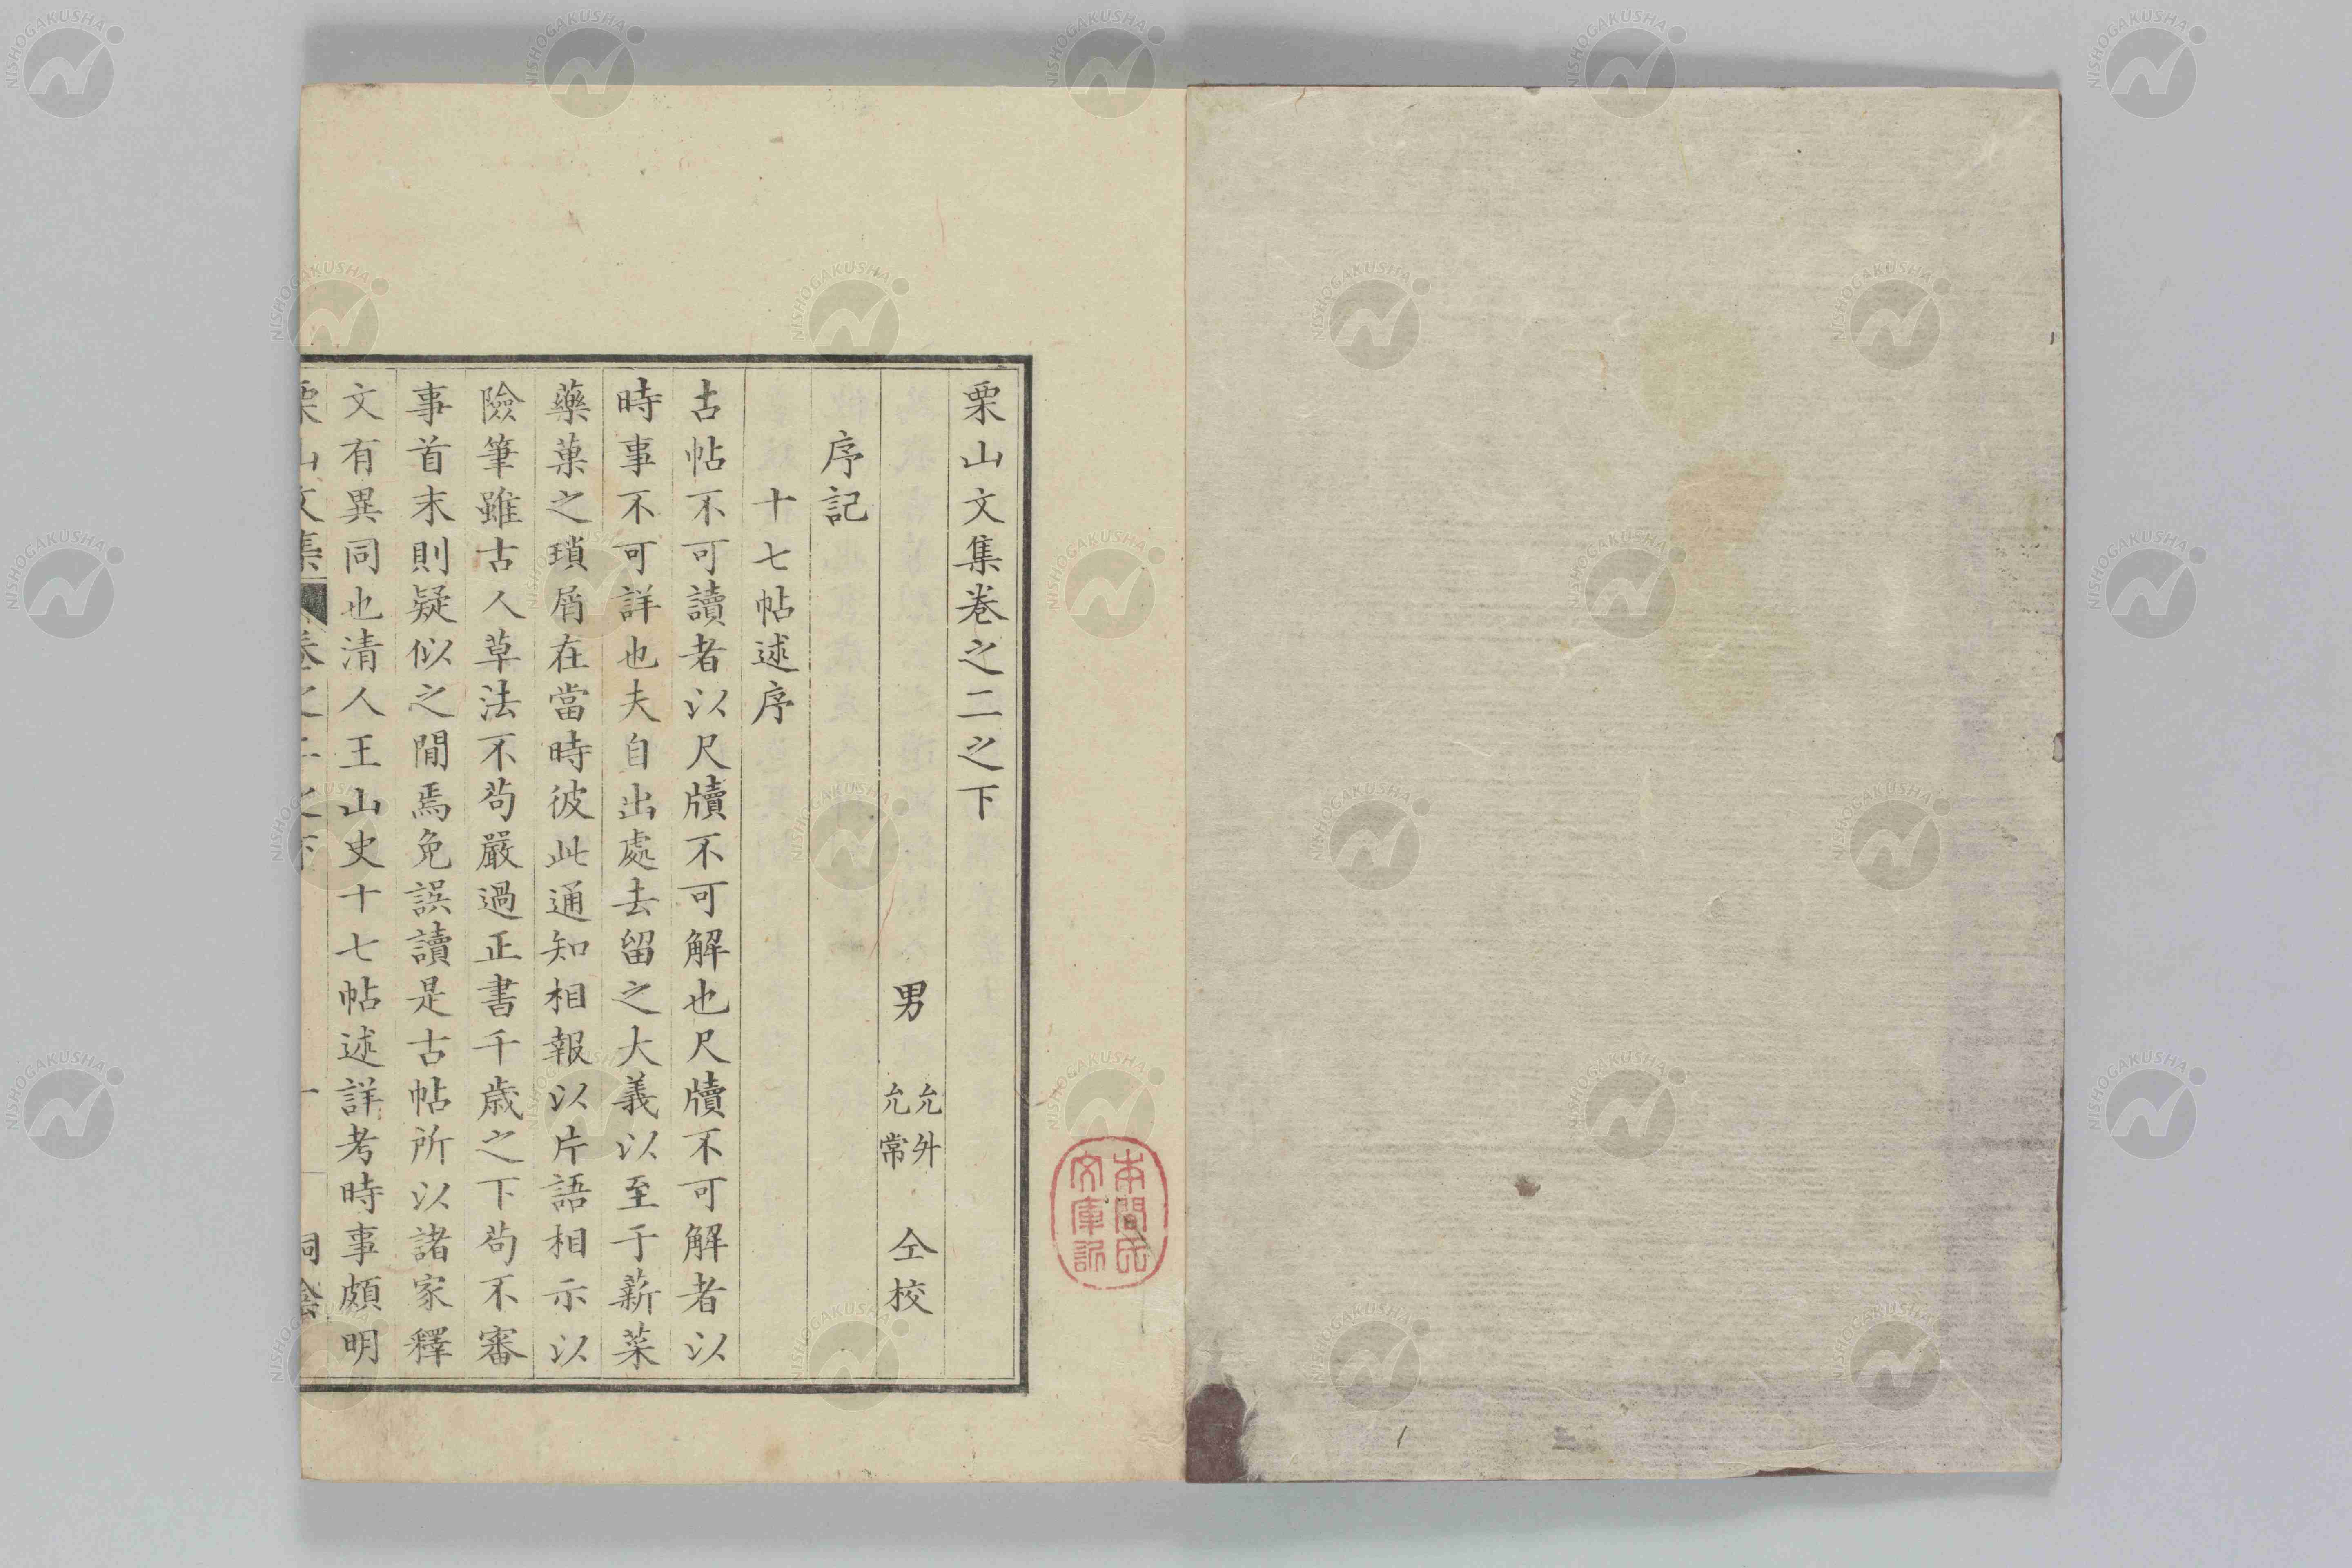 栗山文集卷之二之下
男 允升 允常 仝校
序記
十七帖述序
古帖不可讀者以尺牘不可解也尺牘不可解者以
時事不可詳也夫自出處去留之大義以至于薪菜
藥菓之瑣屑在當時彼此通知相報以片語相示以
險筆雖古人草法不苟嚴過正書千歳之下苟不審
事首末則疑似之間焉免誤讀是古帖所以諸家釋
文有異同也清人王山史十七帖述詳考時事頗明
栗山文集 卷之二之下 一
本間氏
文庫記
NISHOGAKUSHA